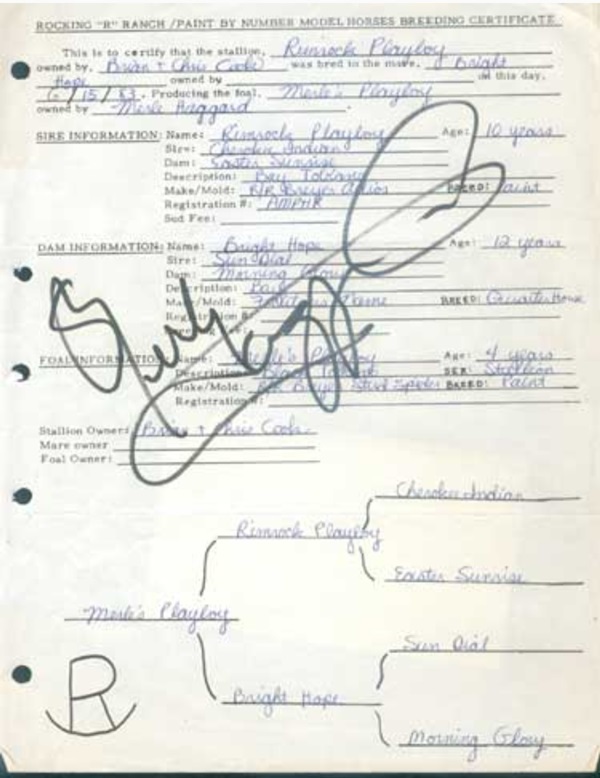 ROCKING "R" RANCH /PAINT BY NUMBER MODEL HORSES BREEDING CERTIFICATE
This is to certify that the stallion, Rimrock Playboy
owned by, Brian + Chris Cook was bred to the mare, Bright
Hope owned by on this day,
6/15/83. Producing the foal, Merle's Playboy
owned by Merle Haggard
SIRE INFORMATION: Name: Rimrock Playboy Age: 10 years
Sire: Cherokee Indian
Dam: Easter Sunrise
Description: Bay Tobiano
Make/Mold: R/R Breyer Adios BREED: Paint
Registration #: AMPHR
Stud Fee:
DAM INFORMATION: Name: Bright Hope Age: 12 years
Sire: Sun Dial
Dam: Morning Glory
Description:
Make/Mold: BREED: Quarter Horse
Registration #:
FOAL INFORMATION: Name: Merle's Playboy Age: 4 years
Description: SEX: Stallion
Make/Mold: R/R Breyer Stud Spider BREED: Paint
Registration #:
Stallion Owner: Brian + Chris Cook
Mare owner
Foal Owner:
Cherokee Indian
Rimrock Playboy
Easter Sunrise
Merle's Playboy
Sun Dial
Bright Hope
Morning Glory
R